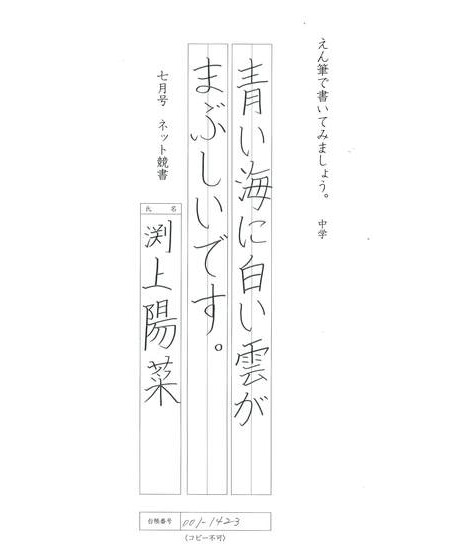 えん筆で書いてみましょう。 中学
青い海に白い雲が
まぶしいです。
七月号 ネット競書
氏 名
渕上陽菜
台帳番号 001-1423
(コピー不可)